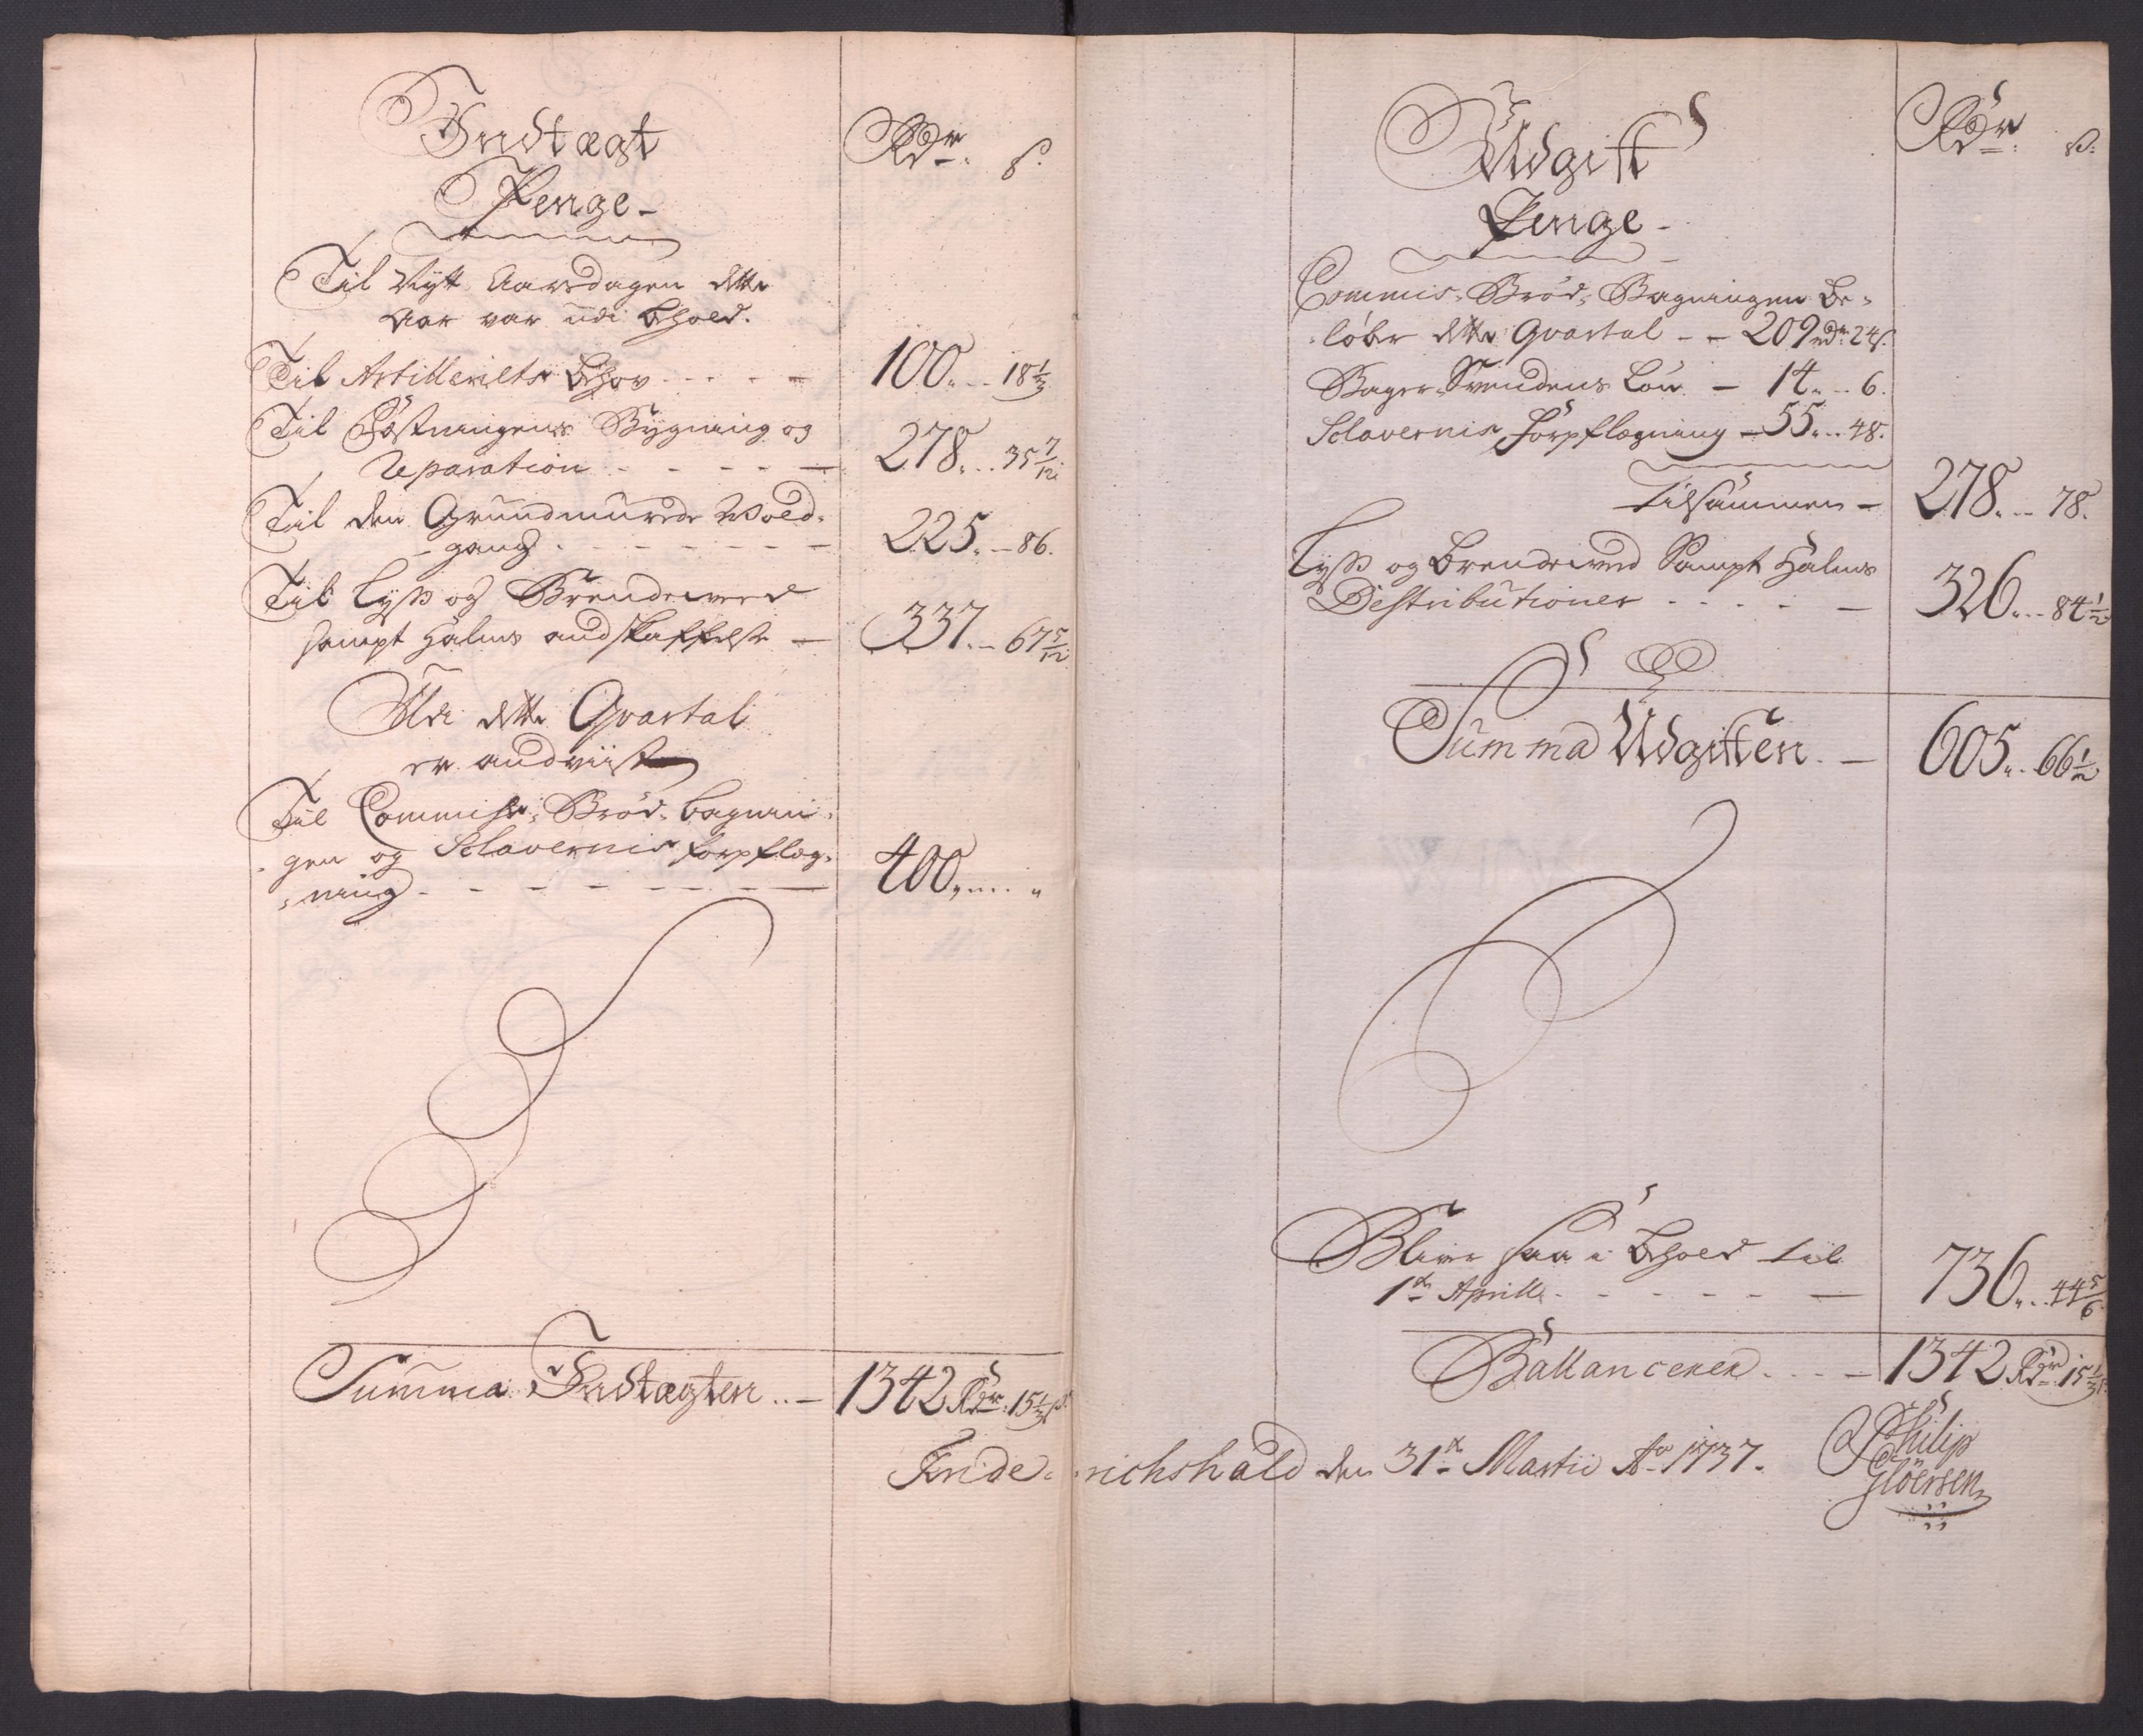 Indtægt
Penge –
Rdr. ß.
Til Nytt Aarsdagen dette
Aar var udi behold.
Til Artilleriets behov 100 „ 18 1/3
Til Fæstningens Bygning og
Reparation 278 „ 35 7/12
Til den Grundmurede Wold-
gang 225 „ 86.
Til Lyß og Brendeweed
sampt Halms andskaffelse 337 „ 67 5/12
Udi dette Qvartal
er andviist
Til Commiss-Brød-bagnin-
gen og Sclavernis forpflæg-
ning 400 „ „
Summa Indtægten 1342 Rdr. 15 1/3 ß
Udgift
Penge –
Rdr. ß.
Commis-Brød-Bagningen be-
løber dette Qvartal – 209 rdr. 24 ß.
Bager-Svendens Løn – 14 „ 6.
Sclavernis Forpflægning – 55 „ 48.
tilsammen – 278 „ 78.
Lyß og Brendeweed Sampt Halms
Destributioner 326 „ 84 1/2
Summa Udgiften – 605 „ 66 1/2
Bliver saa i behold til
1te Aprill 736 „ 44 5/6
Ballancerer 1342 Rdr. 15 1/3 ß
Friderichshald den 31te Martii Ao 1737.
Philip
Gloersen